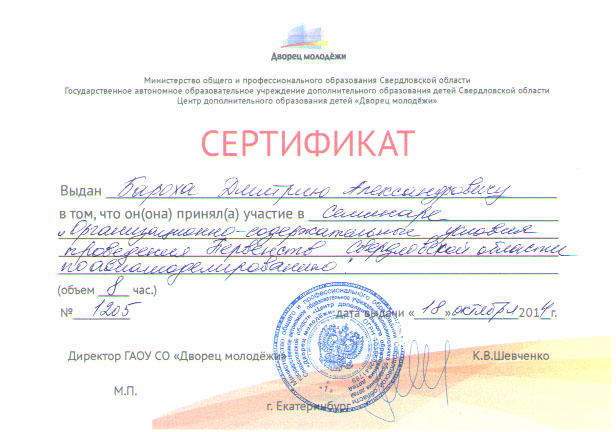 Дворец молодёжи
Министерство общего и профессионального образования Свердловской области
Государственное автономное образовательное учреждение дополнительного образования детей Свердловской области
Центр дополнительного образования детей «Дворец молодёжи»
СЕРТИФИКАТ
Выдан Бароха Дмитрию Александровичу
в том, что он(она) принял(а) участие в Семинаре
„Организационно-содержательные условия
проведения Первенств Свердловской области
по авиамоделированию".
(объем 8 час.)
№ 1205
дата выдачи « 18 » октября 2014 г.
Директор ГАОУ СО «Дворец молодёжи»
К.В.Шевченко
М.П.
г. Екатеринбург